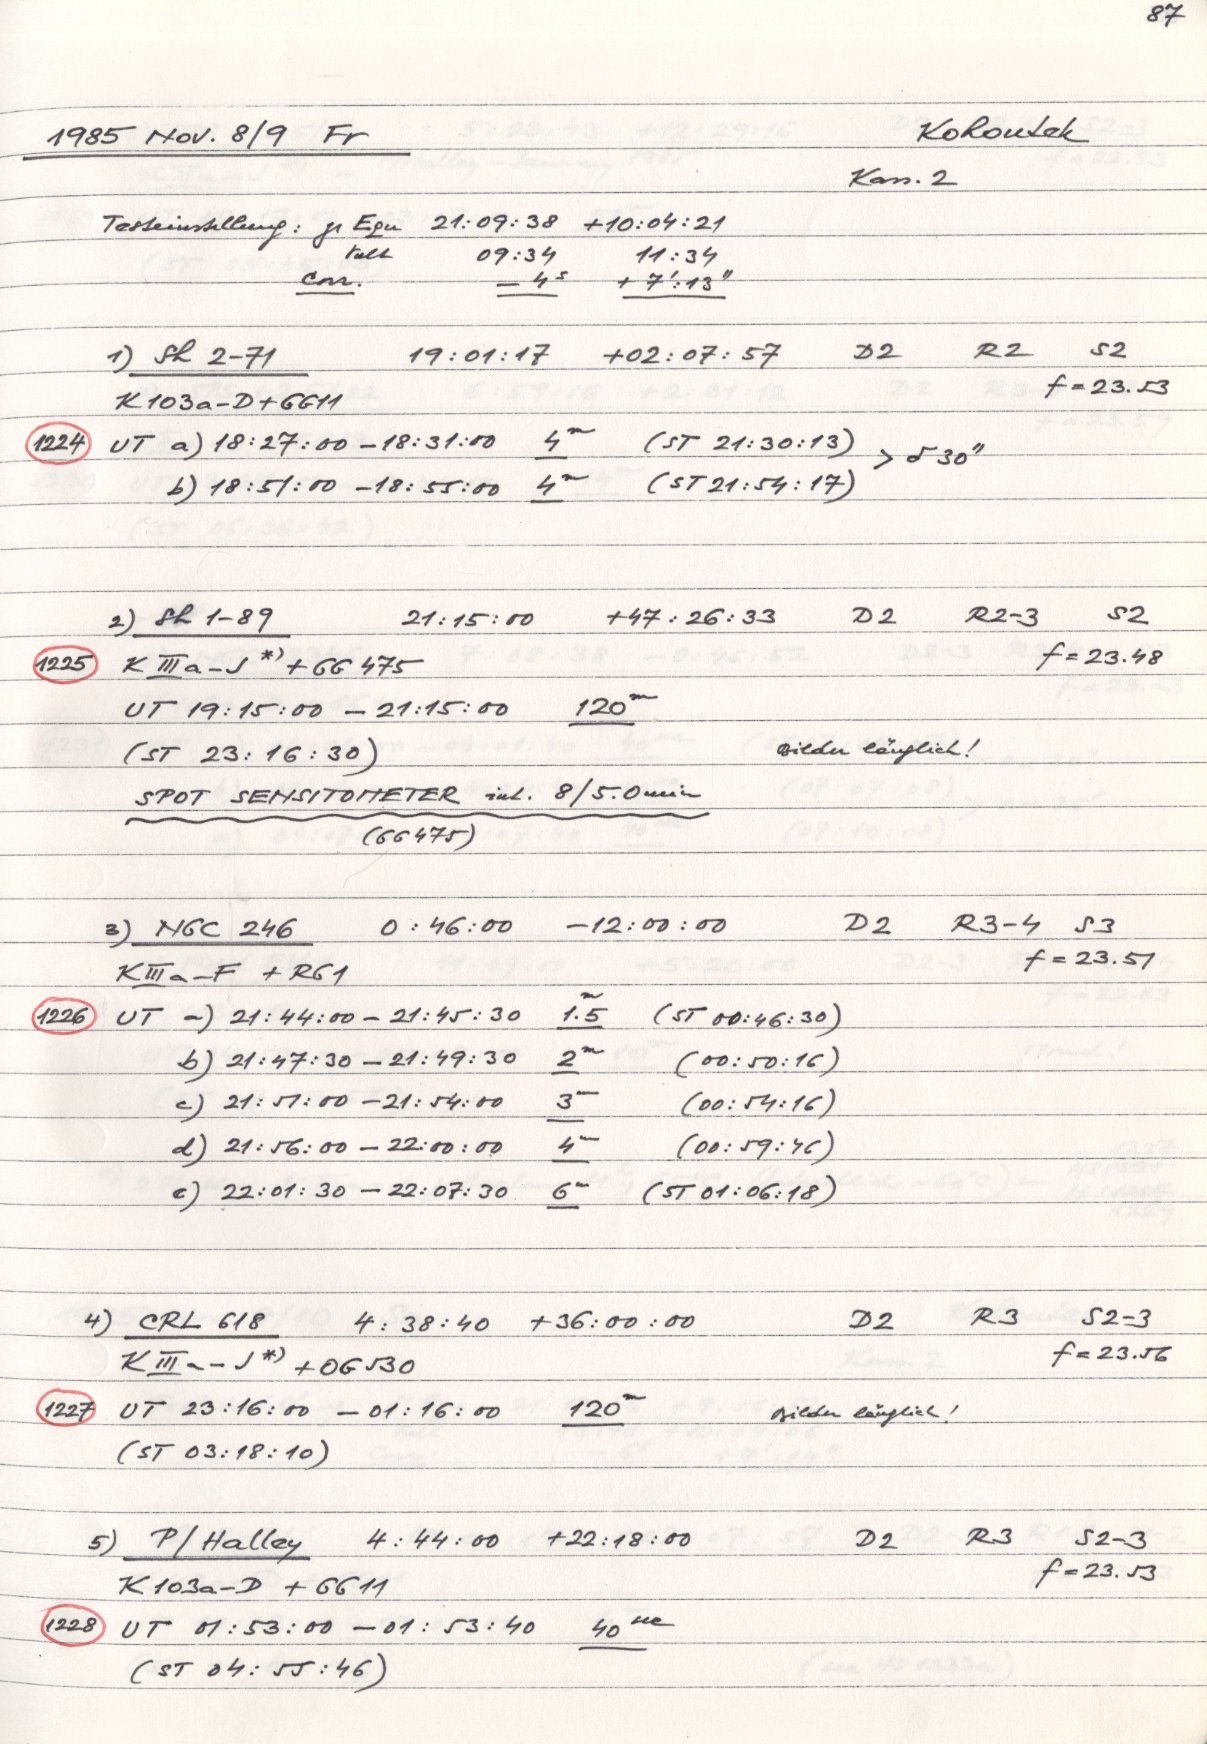 87
1985 Nov. 8/9 Fr Kohoutek
Kass. 2
Testeinstellung: γ Equ 21:09:38 +10:04:21
Pult 09:34 11:34
Corr. -4ˢ +7':13"
1) Sh 2-71 19:01:17 +02:07:57 D2 R2 S2
K 103a-D+GG11 f=23.53
1224 UT a) 18:27:00 - 18:31:00 4ᵐ (ST 21:30:13) > δ 30"
b) 18:51:00 - 18:55:00 4ᵐ (ST 21:54:17)
2) Sh 1-89 21:15:00 +47:26:33 D2 R2-3 S2
1225 K IIIa-J *) + GG 475 f=23.48
UT 19:15:00 - 21:15:00 120ᵐ
(ST 23:16:30) Bilder länglich!
SPOT SENSITOMETER int. 8/5.0 min
(GG 475)
3) NGC 246 0:46:00 -12:00:00 D2 R3-4 S3
K IIIa-F + RG1 f=23.51
1226 UT a) 21:44:00 - 21:45:30 1.5ᵐ (ST 00:46:30)
b) 21:47:30 - 21:49:30 2ᵐ (00:50:16)
c) 21:51:00 - 21:54:00 3ᵐ (00:54:16)
d) 21:56:00 - 22:00:00 4ᵐ (00:59:46)
e) 22:01:30 - 22:07:30 6ᵐ (ST 01:06:18)
4) CRL 618 4:38:40 +36:00:00 D2 R3 S2-3
K IIIa-J *) + OG 530 f=23.56
1227 UT 23:16:00 - 01:16:00 120ᵐ Bilder länglich!
(ST 03:18:10)
5) P/Halley 4:44:00 +22:18:00 D2 R3 S2-3
K 103a-D + GG11 f=23.53
1228 UT 01:53:00 - 01:53:40 40 sec
(ST 04:55:46)